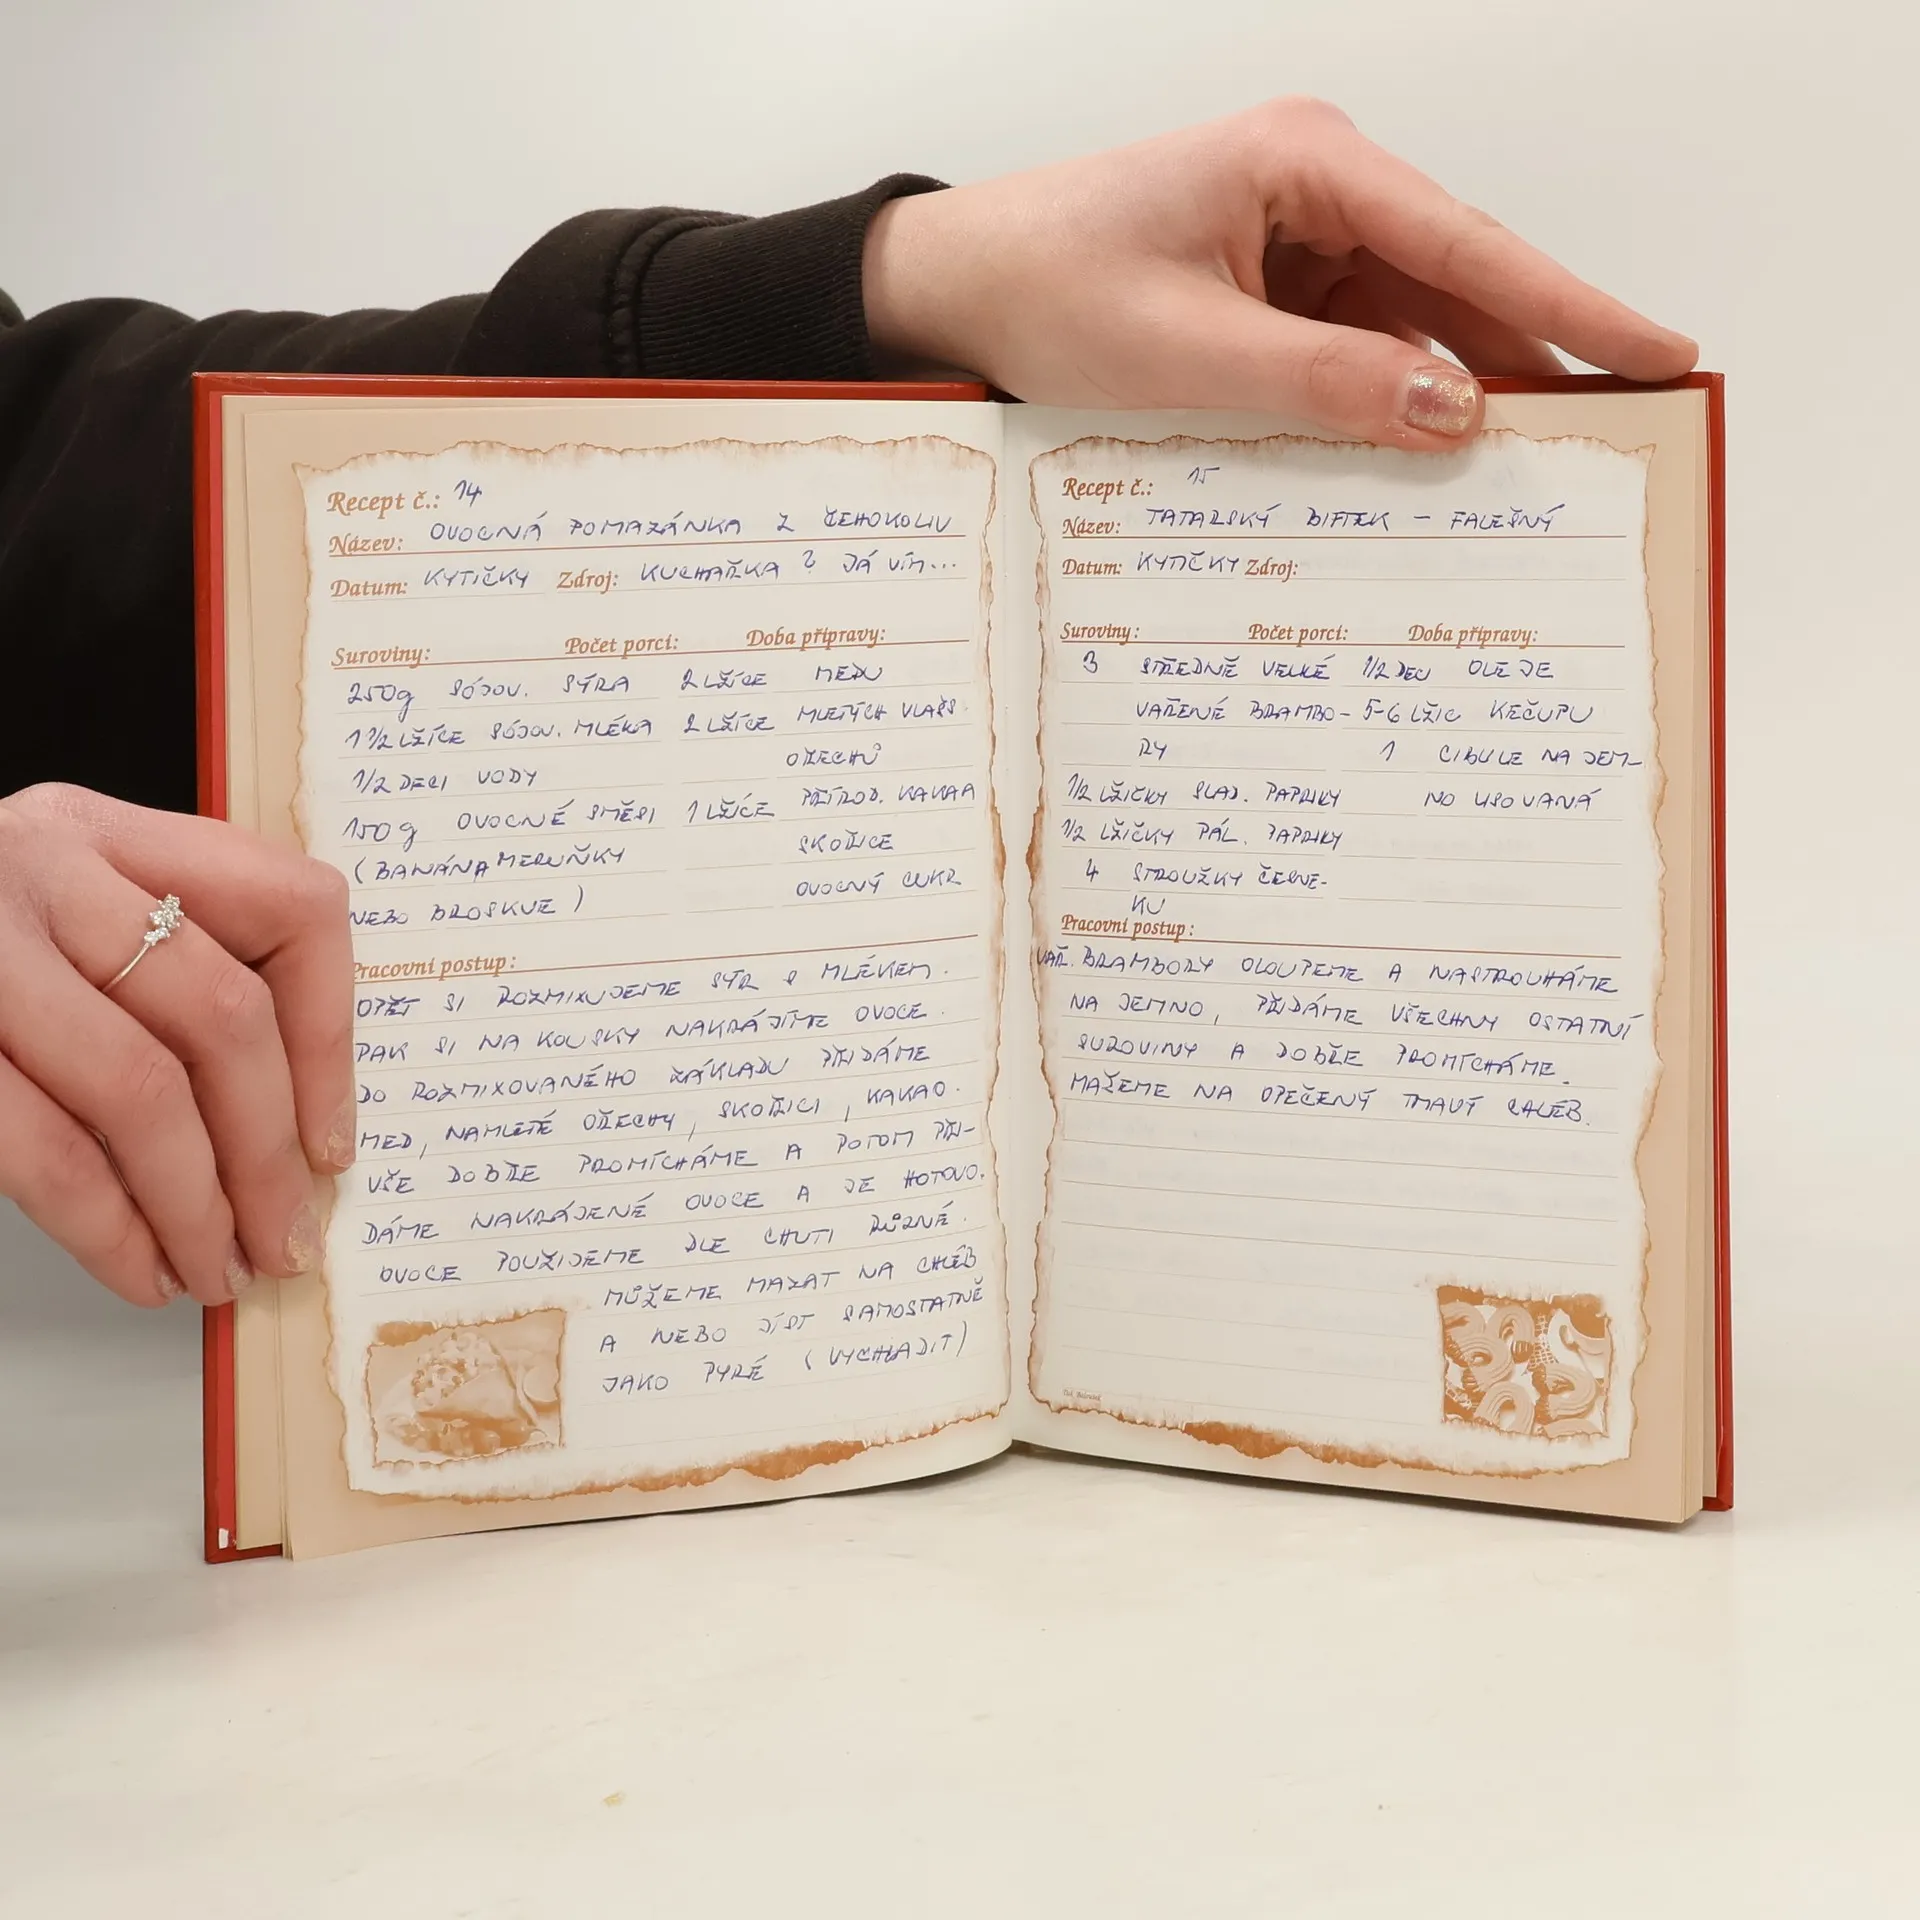 Recept č.: 14
Název: OVOCNÁ POMAZÁNKA Z ČEHOKOLIV
Datum: KYTIČKY Zdroj: KUCHAŘKA ? JÁ VÍM...
Suroviny: Počet porcí: Doba přípravy:
250g SÓJOV. SÝRA 2 LŽÍCE MEDU
1 1/2 LŽÍCE SÓJOV. MLÉKA 2 LŽÍCE MLETÝCH VLAŠS.
1/2 DECI VODY OŘECHŮ
150 g OVOCNÉ SMĚSI 1 LŽÍCE PŘÍROD. KAKAA
(BANÁNA MERUŇKY SKOŘICE
NEBO BROSKVE) OVOCNÝ CUKR
Pracovní postup:
OPĚT SI ROZMIXUJEME SÝR S MLÉKEM.
PAK SI NA KOUSKY NAKRÁJÍME OVOCE.
DO ROZMIXOVANÉHO ZÁKLADU PŘIDÁME
MED, NAMLETÉ OŘECHY, SKOŘICI, KAKAO.
VŠE DOBŘE PROMÍCHÁME A POTOM PŘI-
DÁME NAKRÁJENÉ OVOCE A JE HOTOVO.
OVOCE POUŽIJEME DLE CHUTI RŮZNÉ.
MŮŽEME MAZAT NA CHLÉB
A NEBO JÍST SAMOSTATNĚ
JAKO PYRÉ (VYCHLADIT)
Recept č.: 15
Název: TATARSKÝ BIFTEK - FALEŠNÝ
Datum: KYTIČKY Zdroj:
Suroviny: Počet porcí: Doba přípravy:
3 STŘEDNĚ VELKÉ 1/2 DECI OLEJE
VAŘENÉ BRAMBO- 5-6 LŽIC KEČUPU
RY 1 CIBULE NA JEM-
1/2 LŽIČKY SLAD. PAPRIKY NO USOVANÁ
1/2 LŽIČKY PÁL. PAPRIKY
4 STROUŽKY ČESNE-
KU
Pracovní postup:
VAŘ. BRAMBORY OLOUPEME A NASTROUHÁME
NA JEMNO, PŘIDÁME VŠECHNY OSTATNÍ
SUROVINY A DOBŘE PROMÍCHÁME.
MAŽEME NA OPEČENÝ TMAVÝ CHLÉB.